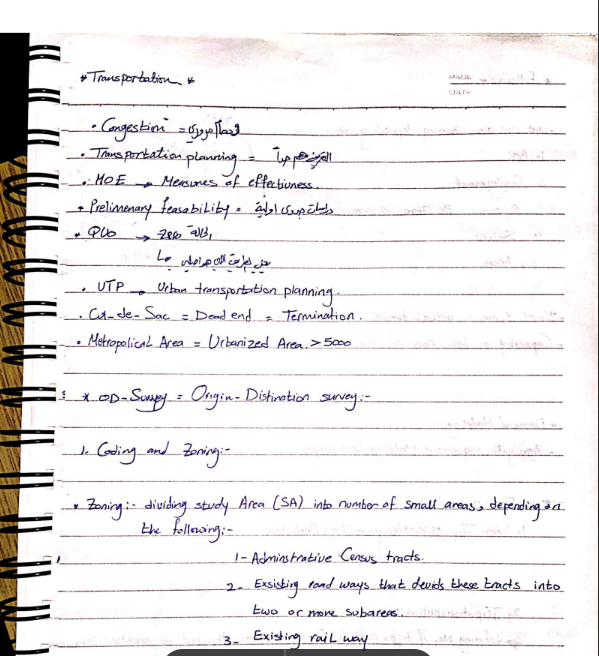 * Transportation *
PAGE
DATE
• Congestion =
• Transportation planning =
• MOE → Measures of effectivness.
* Prelimenary feasability = دراسات جدوى اولية
* → Zero
• UTP → Urban transportation planning.
• Cul-de-Sac = Dead end = Termination.
• Metropolical Area = Urbanized Area > 5000
* OD-Survey = Origin-Distination survey:-
1. Coding and Zoning:-
* Zoning:- dividing study Area (SA) into number of small areas, depending on
the following:-
1- Adminstrative Census tracts.
2- Exsisting road ways that devids these tracts into
two or more subareas.
3- Existing rail way